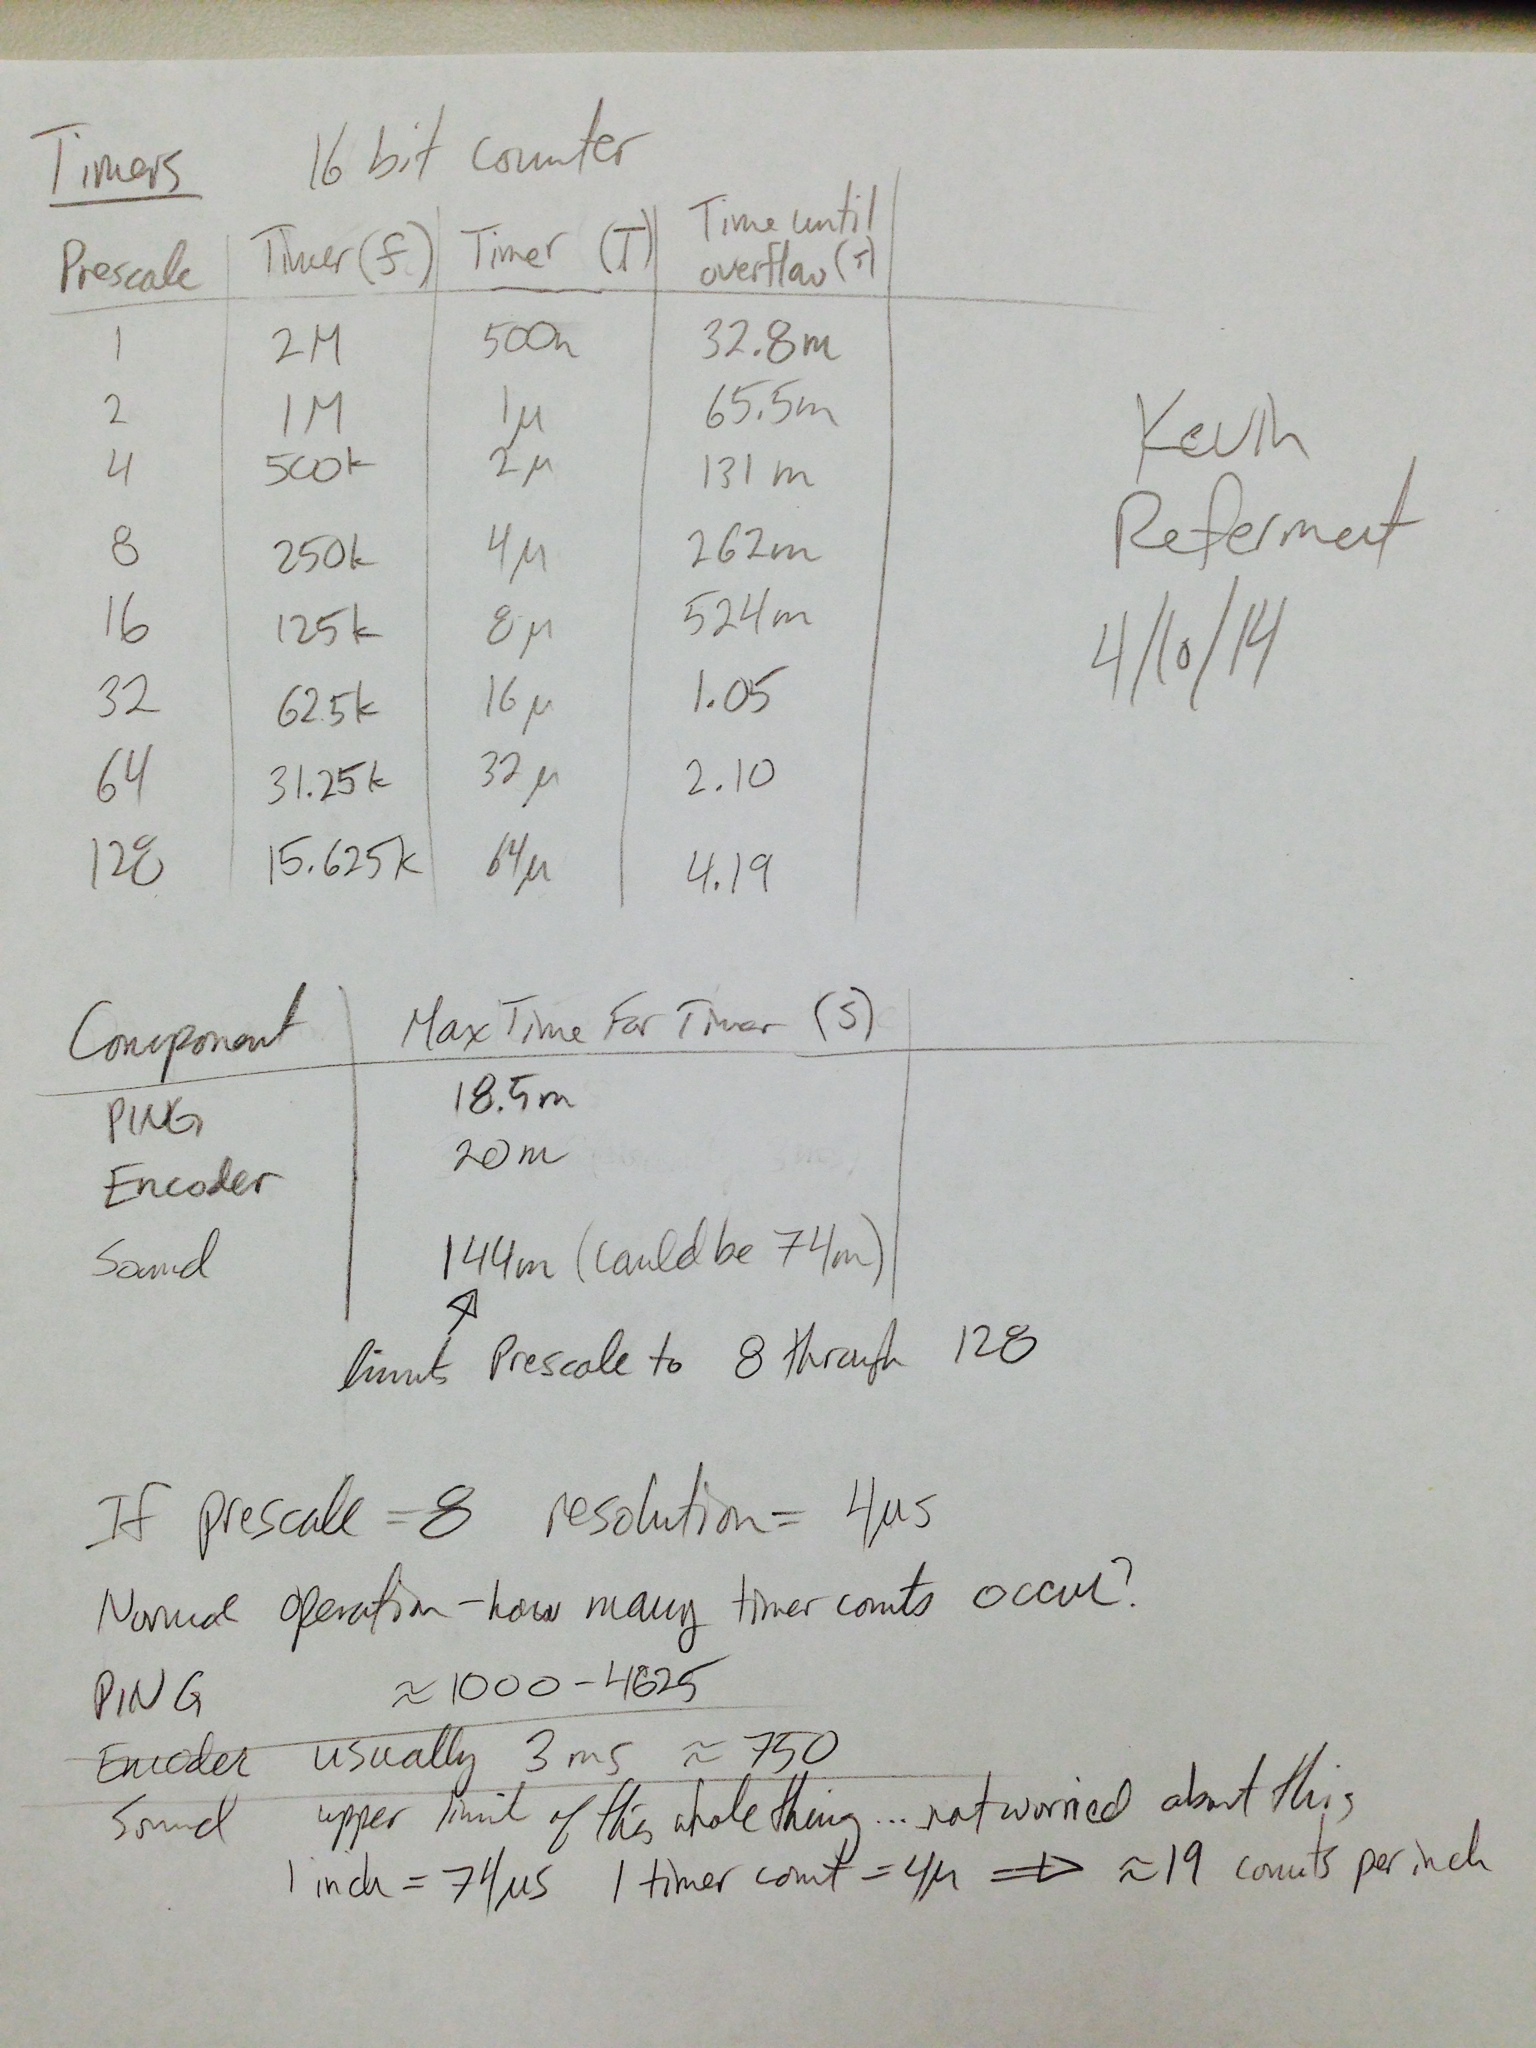 Timers 16 bit counter
Prescale Timer (f) Timer (T) Time until overflow (T)
1 2M 500n 32.8m
2 1M 1μ 65.5m
4 500k 2μ 131m
8 250k 4μ 262m
16 125k 8μ 524m
32 62.5k 16μ 1.05
64 31.25k 32μ 2.10
128 15.625k 64μ 4.19
Kevin
4/10/14
Component Max Time For Timer (S)
PING 18.5m
Encoder 20m
Sound 144m (could be 74m)
limits Prescale to 8 through 128
If prescale = 8 resolution = 4μs
Normal operation - how many timer counts occur?
PING ≈ 1000 - 4625
Encoder usually 3 ms ≈ 750
Sound upper limit of this whole thing... not worried about this
1 inch = 74μs 1 timer count = 4μ ⇒ ≈ 19 counts per inch